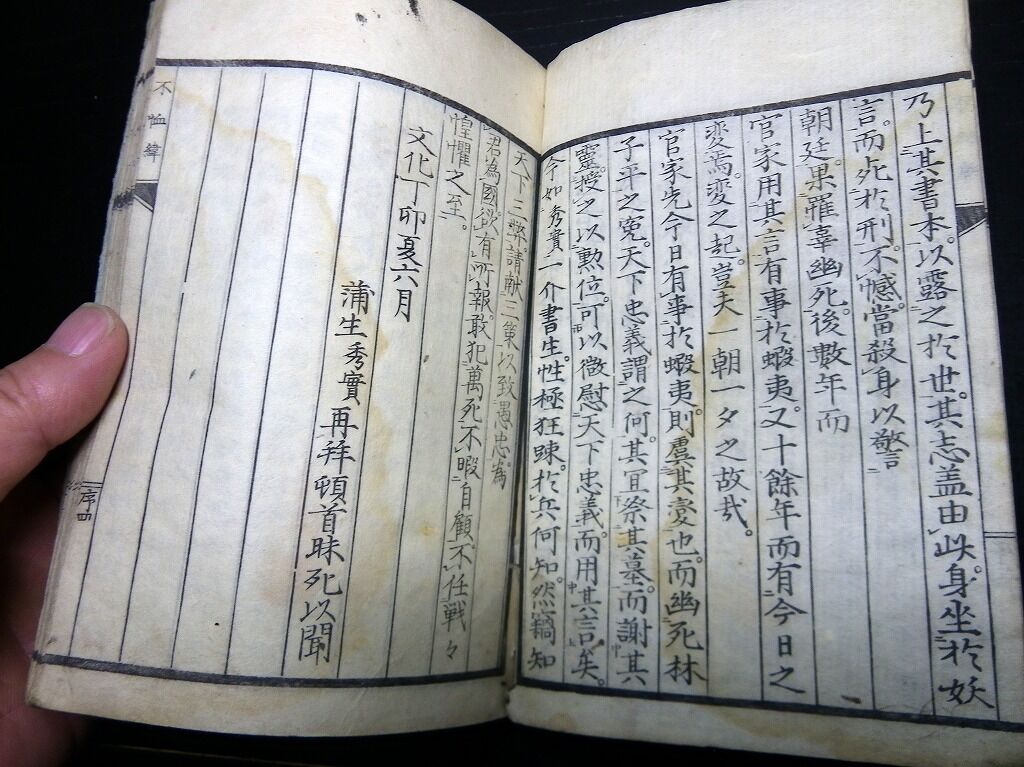 乃上其書本。以露之於世。其志盖由此。身坐於妖
言。而死於刑。不憾。當殺身以警
朝廷。果罹辜幽死。後數年而
官家用其言有事於蝦夷。又十餘年而有今日之
変焉。変之起。豈夫一朝一夕之故哉。
官家先今日有事於蝦夷。則慮其変也。而幽死林
子平之寃。天下忠義謂之何。其宜祭其墓。而謝其
靈。授之以勲位。可以徴慰天下忠義。而用其言矣。
今如秀實一介書生。性極狂踈。於兵何知。然竊知
天下三弊。請献三策以致愚忠。為
君為國。欲有所報敢犯萬死不暇自顧不任戦々
惶懼之至。
文化丁卯夏六月
蒲生秀實再拜頓首昧死以聞
不恤緯
序四